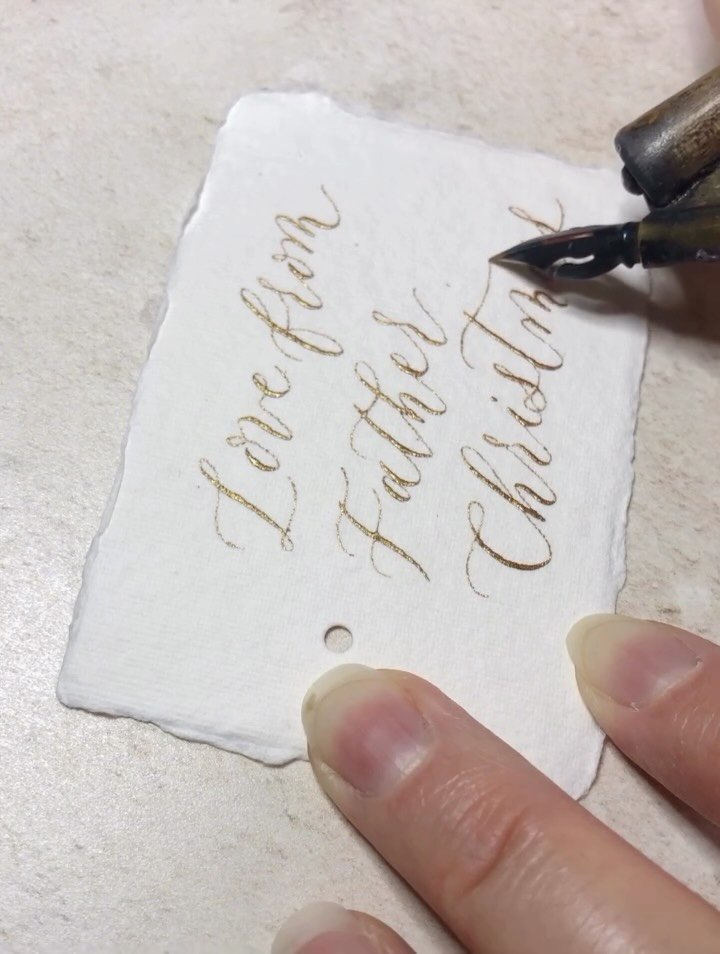 Love from
Father
Christmas